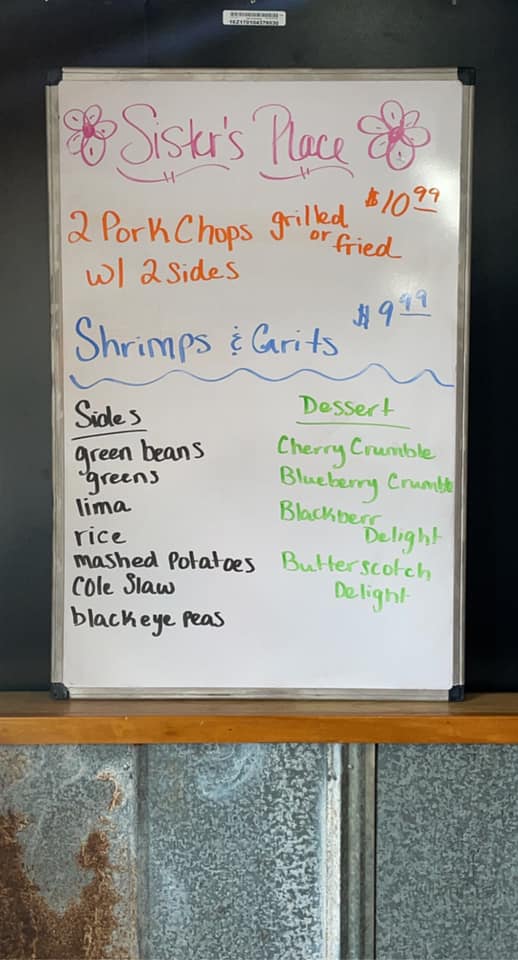 Sister's Place
2 Pork Chops grilled or fried $10.99
w/ 2 sides
Shrimps & Grits $9.99
Sides
green beans
greens
lima
rice
mashed Potatoes
Cole Slaw
blackeye peas
Dessert
Cherry Crumble
Blueberry Crumble
Blackberr
Delight
Butterscotch
Delight